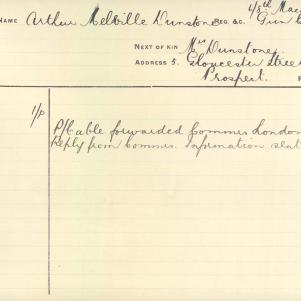 1/8th Mac
NAME Arthur Melville Dunstone REG. &C. Gun
NEXT OF KIN Mrs Dunstone
ADDRESS 5. Gloucester Stree
Prospect.
1/P
P/Cable forwarded Commrs London
Reply from Commrs. Information